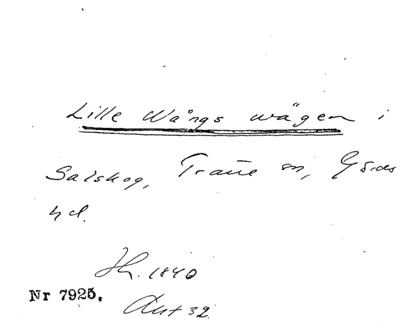 Lille Wångs wägen i
Salskog, Trane sn, Gärds
hd.
Hr. 1840
Nr 7925. Akt 32.